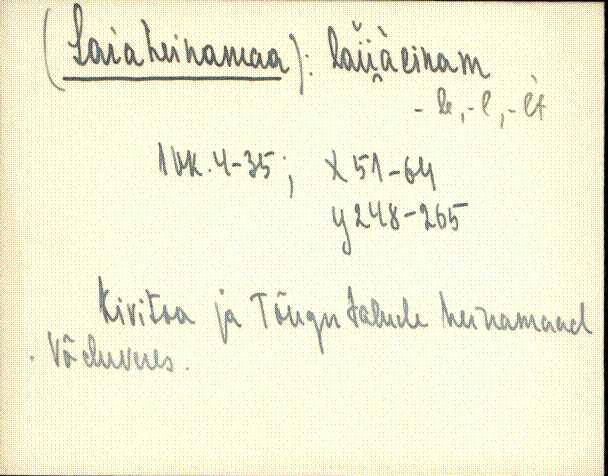 (Laiaheinamaa): laiiäeinam
- le, -l, -lt
1vk. 4-35; X 51-64
y 248-265
Kivitoa ja Tõugu talude heinamaad
Võduveres.